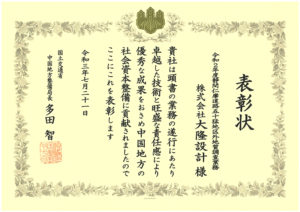 表彰状
令和二年度静間仁摩道路五十猛地区外地質調査業務
株式会社大隆設計 様
貴社は頭書の業務の遂行にあたり
卓越した技術と旺盛な責任感により
優秀な成果をおさめ中国地方の
社会資本整備に貢献されましたので
ここにこれを表彰します
令和三年七月二十一日
国土交通省
中国地方整備局長 多田 智